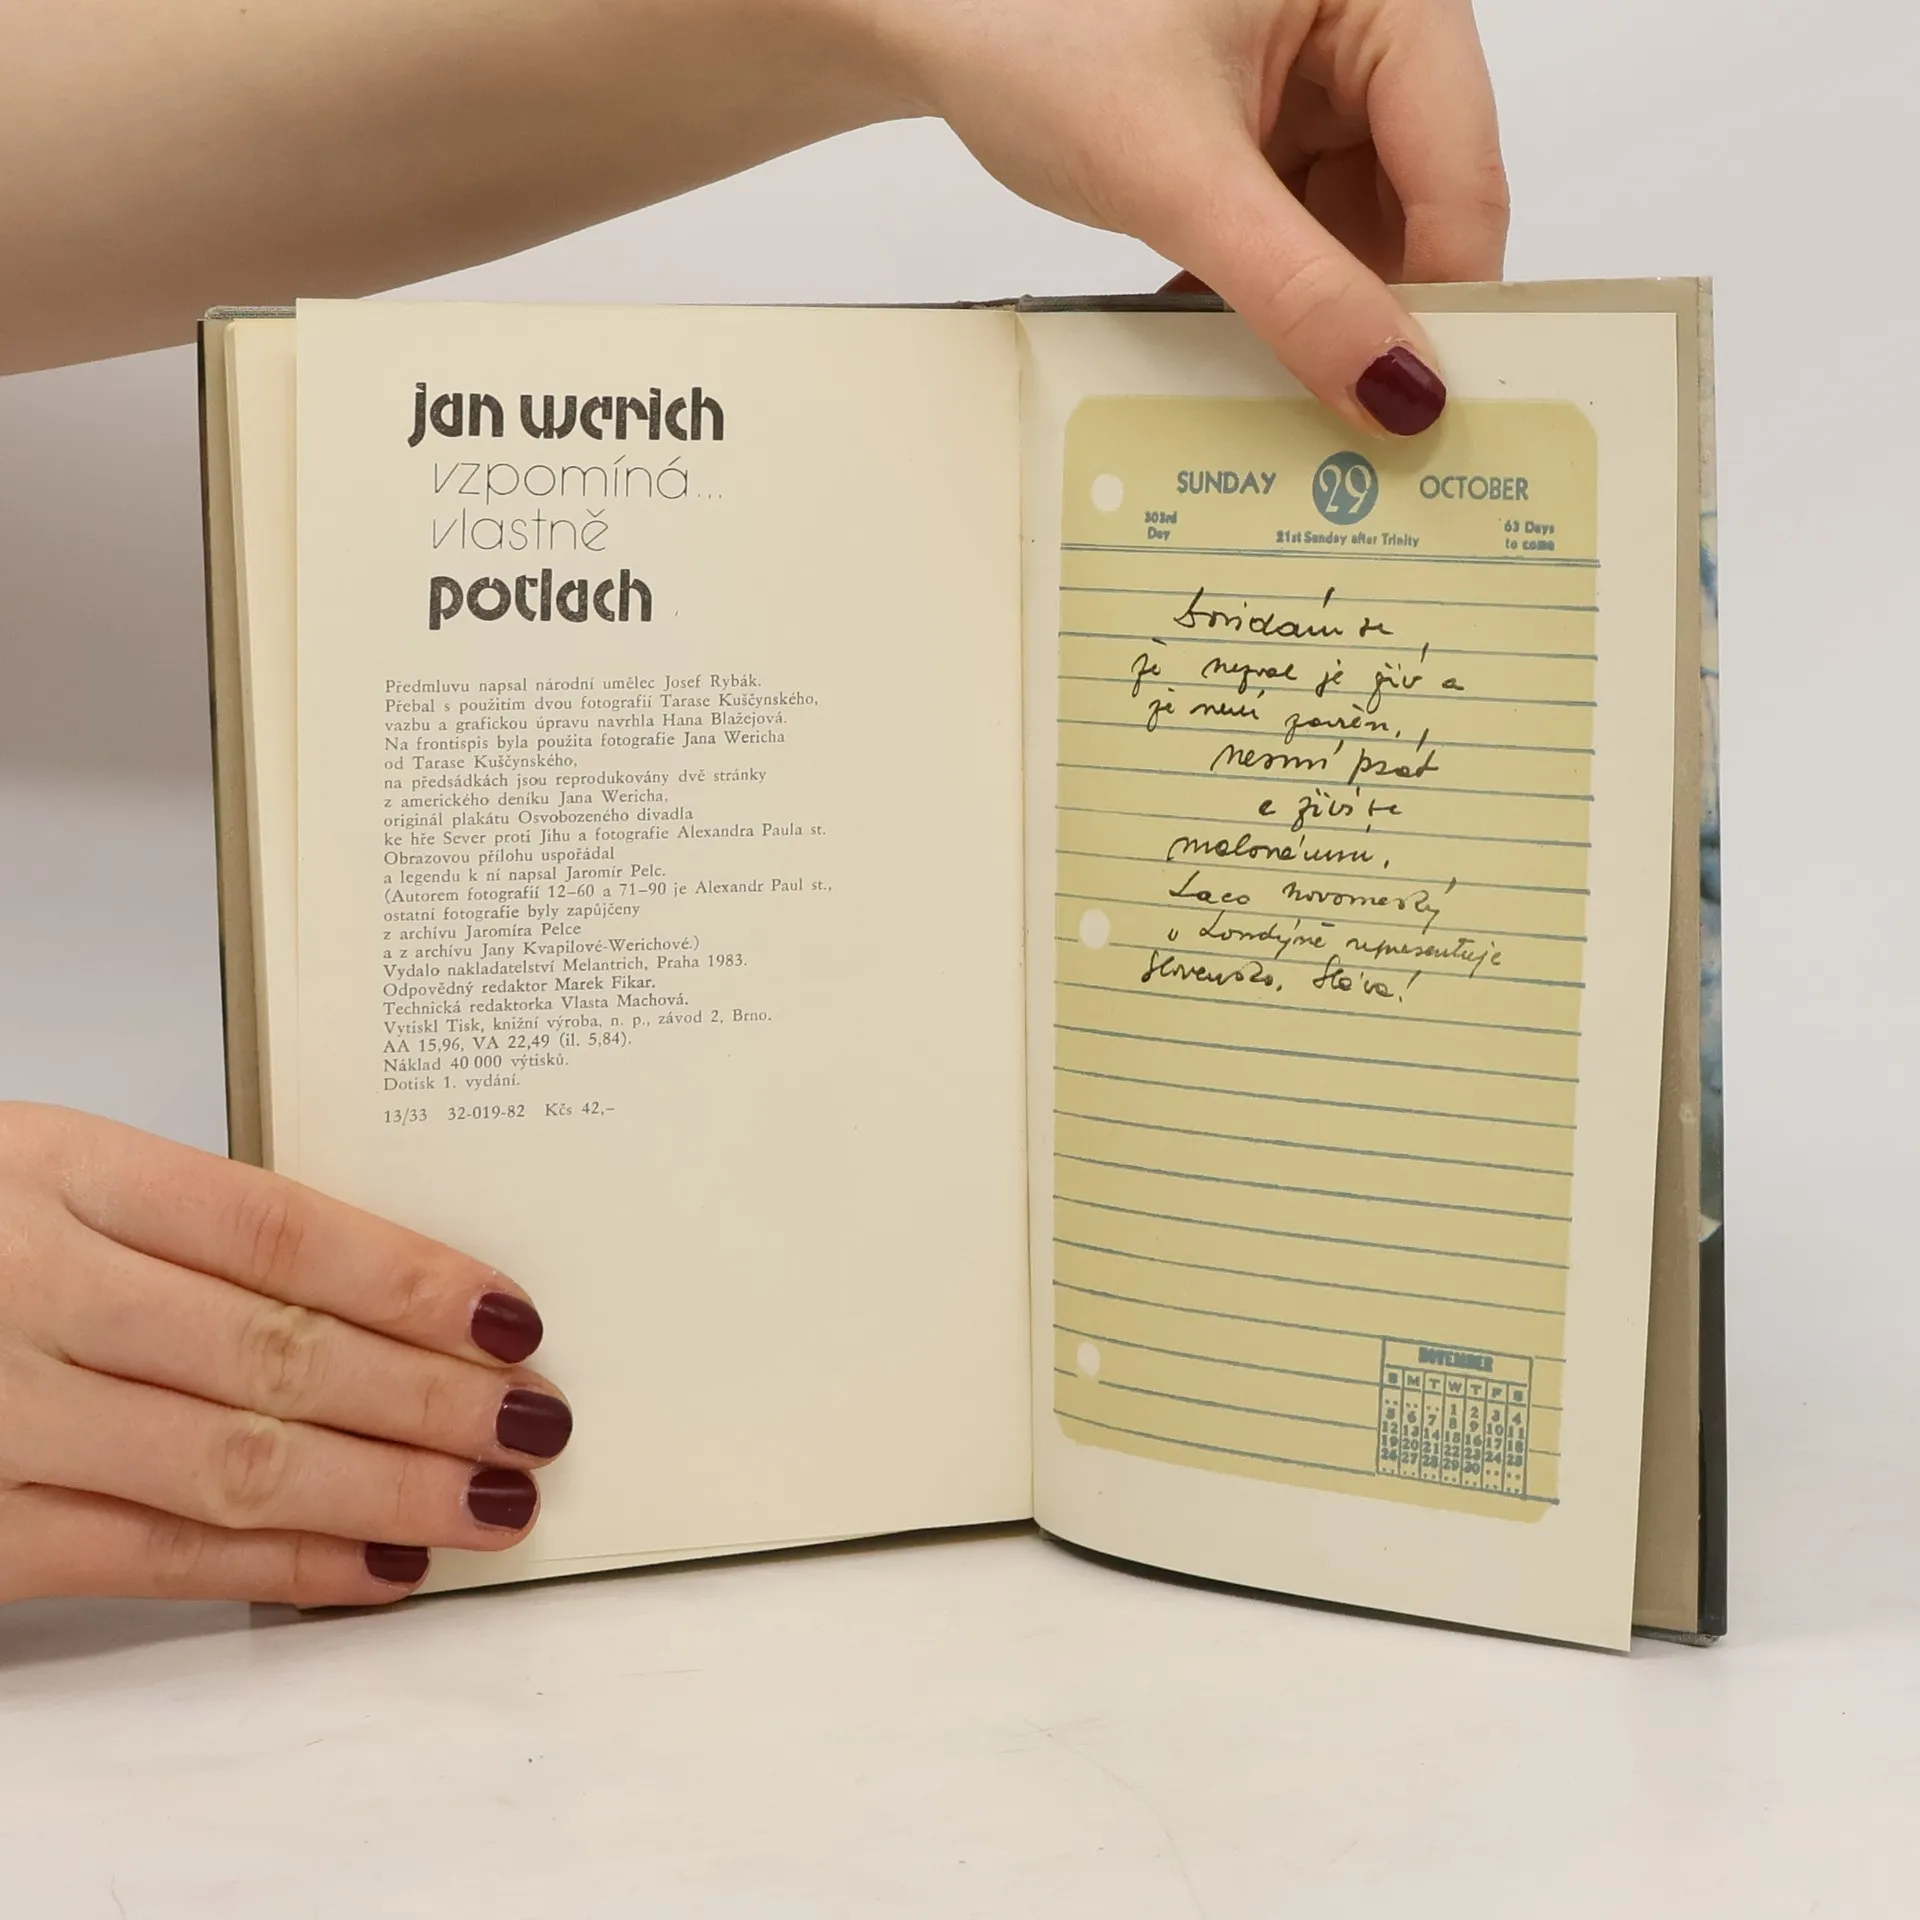 jan werich
vzpomíná...
vlastně
potlach
Předmluvu napsal národní umělec Josef Rybák.
Přebal s použitím dvou fotografií Tarase Kuščynského,
vazbu a grafickou úpravu navrhla Hana Blažejová.
Na frontispis byla použita fotografie Jana Wericha
od Tarase Kuščynského,
na předsádkách jsou reprodukovány dvě stránky
z amerického deníku Jana Wericha,
originál plakátu Osvobozeného divadla
ke hře Sever proti Jihu a fotografie Alexandra Paula st.
Obrazovou přílohu uspořádal
a legendu k ní napsal Jaromír Pelc.
(Autorem fotografií 12–60 a 71–90 je Alexandr Paul st.,
ostatní fotografie byly zapůjčeny
z archívu Jaromíra Pelce
a z archívu Jany Kvapilové-Werichové.)
Vydalo nakladatelství Melantrich, Praha 1983.
Odpovědný redaktor Marek Fikar.
Technická redaktorka Vlasta Machová.
Vytiskl Tisk, knižní výroba, n. p., závod 2, Brno.
AA 15,96, VA 22,49 (il. 5,84).
Náklad 40 000 výtisků.
Dotisk 1. vydání.
13/33 32-019-82 Kčs 42,–
SUNDAY 29 OCTOBER
303rd Day 21st Sunday after Trinity 63 Days to come
se
že nezval je živ a
že není zavřen,
nesmí psát
a živí se
malováním.
Laco Novomeský
v Londýně representuje
Slovensko. Sláva!
NOVEMBER
S M T W T F S
.. .. .. 1 2 3 4
5 6 7 8 9 10 11
12 13 14 15 16 17 18
19 20 21 22 23 24 25
26 27 28 29 30 .. ..